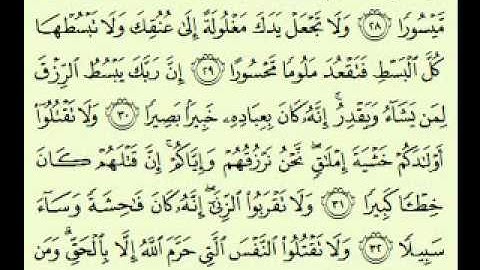 مَّيْسُورًا ﴿٢٨﴾ وَلَا تَجْعَلْ يَدَكَ مَغْلُولَةً إِلَىٰ عُنُقِكَ وَلَا تَبْسُطْهَا
كُلَّ ٱلْبَسْطِ فَتَقْعُدَ مَلُومًا مَّحْسُورًا ﴿٢٩﴾ إِنَّ رَبَّكَ يَبْسُطُ ٱلرِّزْقَ
لِمَن يَشَآءُ وَيَقْدِرُ ۚ إِنَّهُۥ كَانَ بِعِبَادِهِۦ خَبِيرًۢا بَصِيرًا ﴿٣٠﴾ وَلَا تَقْتُلُوٓا۟
أَوْلَـٰدَكُمْ خَشْيَةَ إِمْلَـٰقٍ ۖ نَّحْنُ نَرْزُقُهُمْ وَإِيَّاكُمْ ۚ إِنَّ قَتْلَهُمْ كَانَ
خِطْـًٔا كَبِيرًا ﴿٣١﴾ وَلَا تَقْرَبُوا۟ ٱلزِّنَىٰٓ ۖ إِنَّهُۥ كَانَ فَـٰحِشَةً وَسَآءَ
سَبِيلًا ﴿٣٢﴾ وَلَا تَقْتُلُوا۟ ٱلنَّفْسَ ٱلَّتِى حَرَّمَ ٱللَّهُ إِلَّا بِٱلْحَقِّ ۗ وَمَن